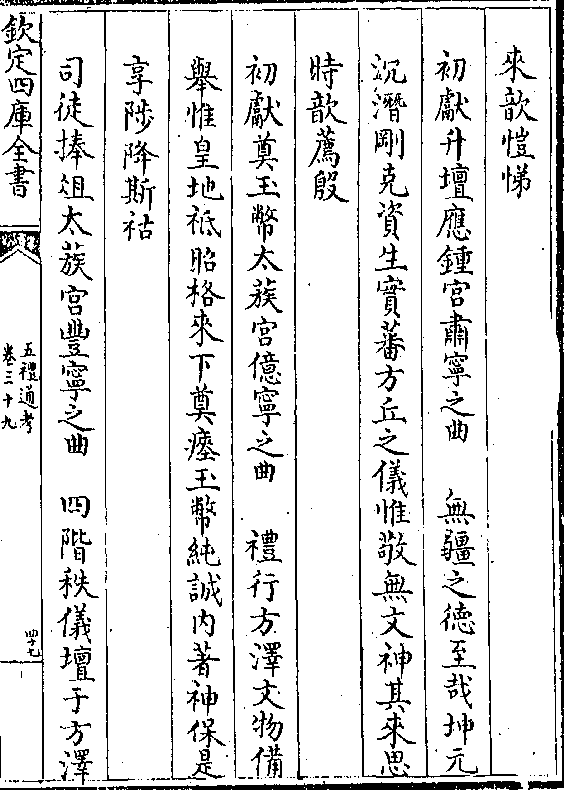 來歆愷悌
初獻升壇應鍾宮肅寧之曲　無疆之德至哉坤元
沉潛剛克資生實蕃方丘之儀惟敬無文神其來思
時歆薦殷
初獻奠玉幣太蔟宮億寧之曲　禮行方澤文物備
舉惟皇地祇昭格來下奠瘞玉幣純誠內著神保是
享陟降斯祜
司徒捧俎太蔟宮豐寧之曲　四階秩儀壇于方澤
欽定四庫全書
五禮通考
卷三十九